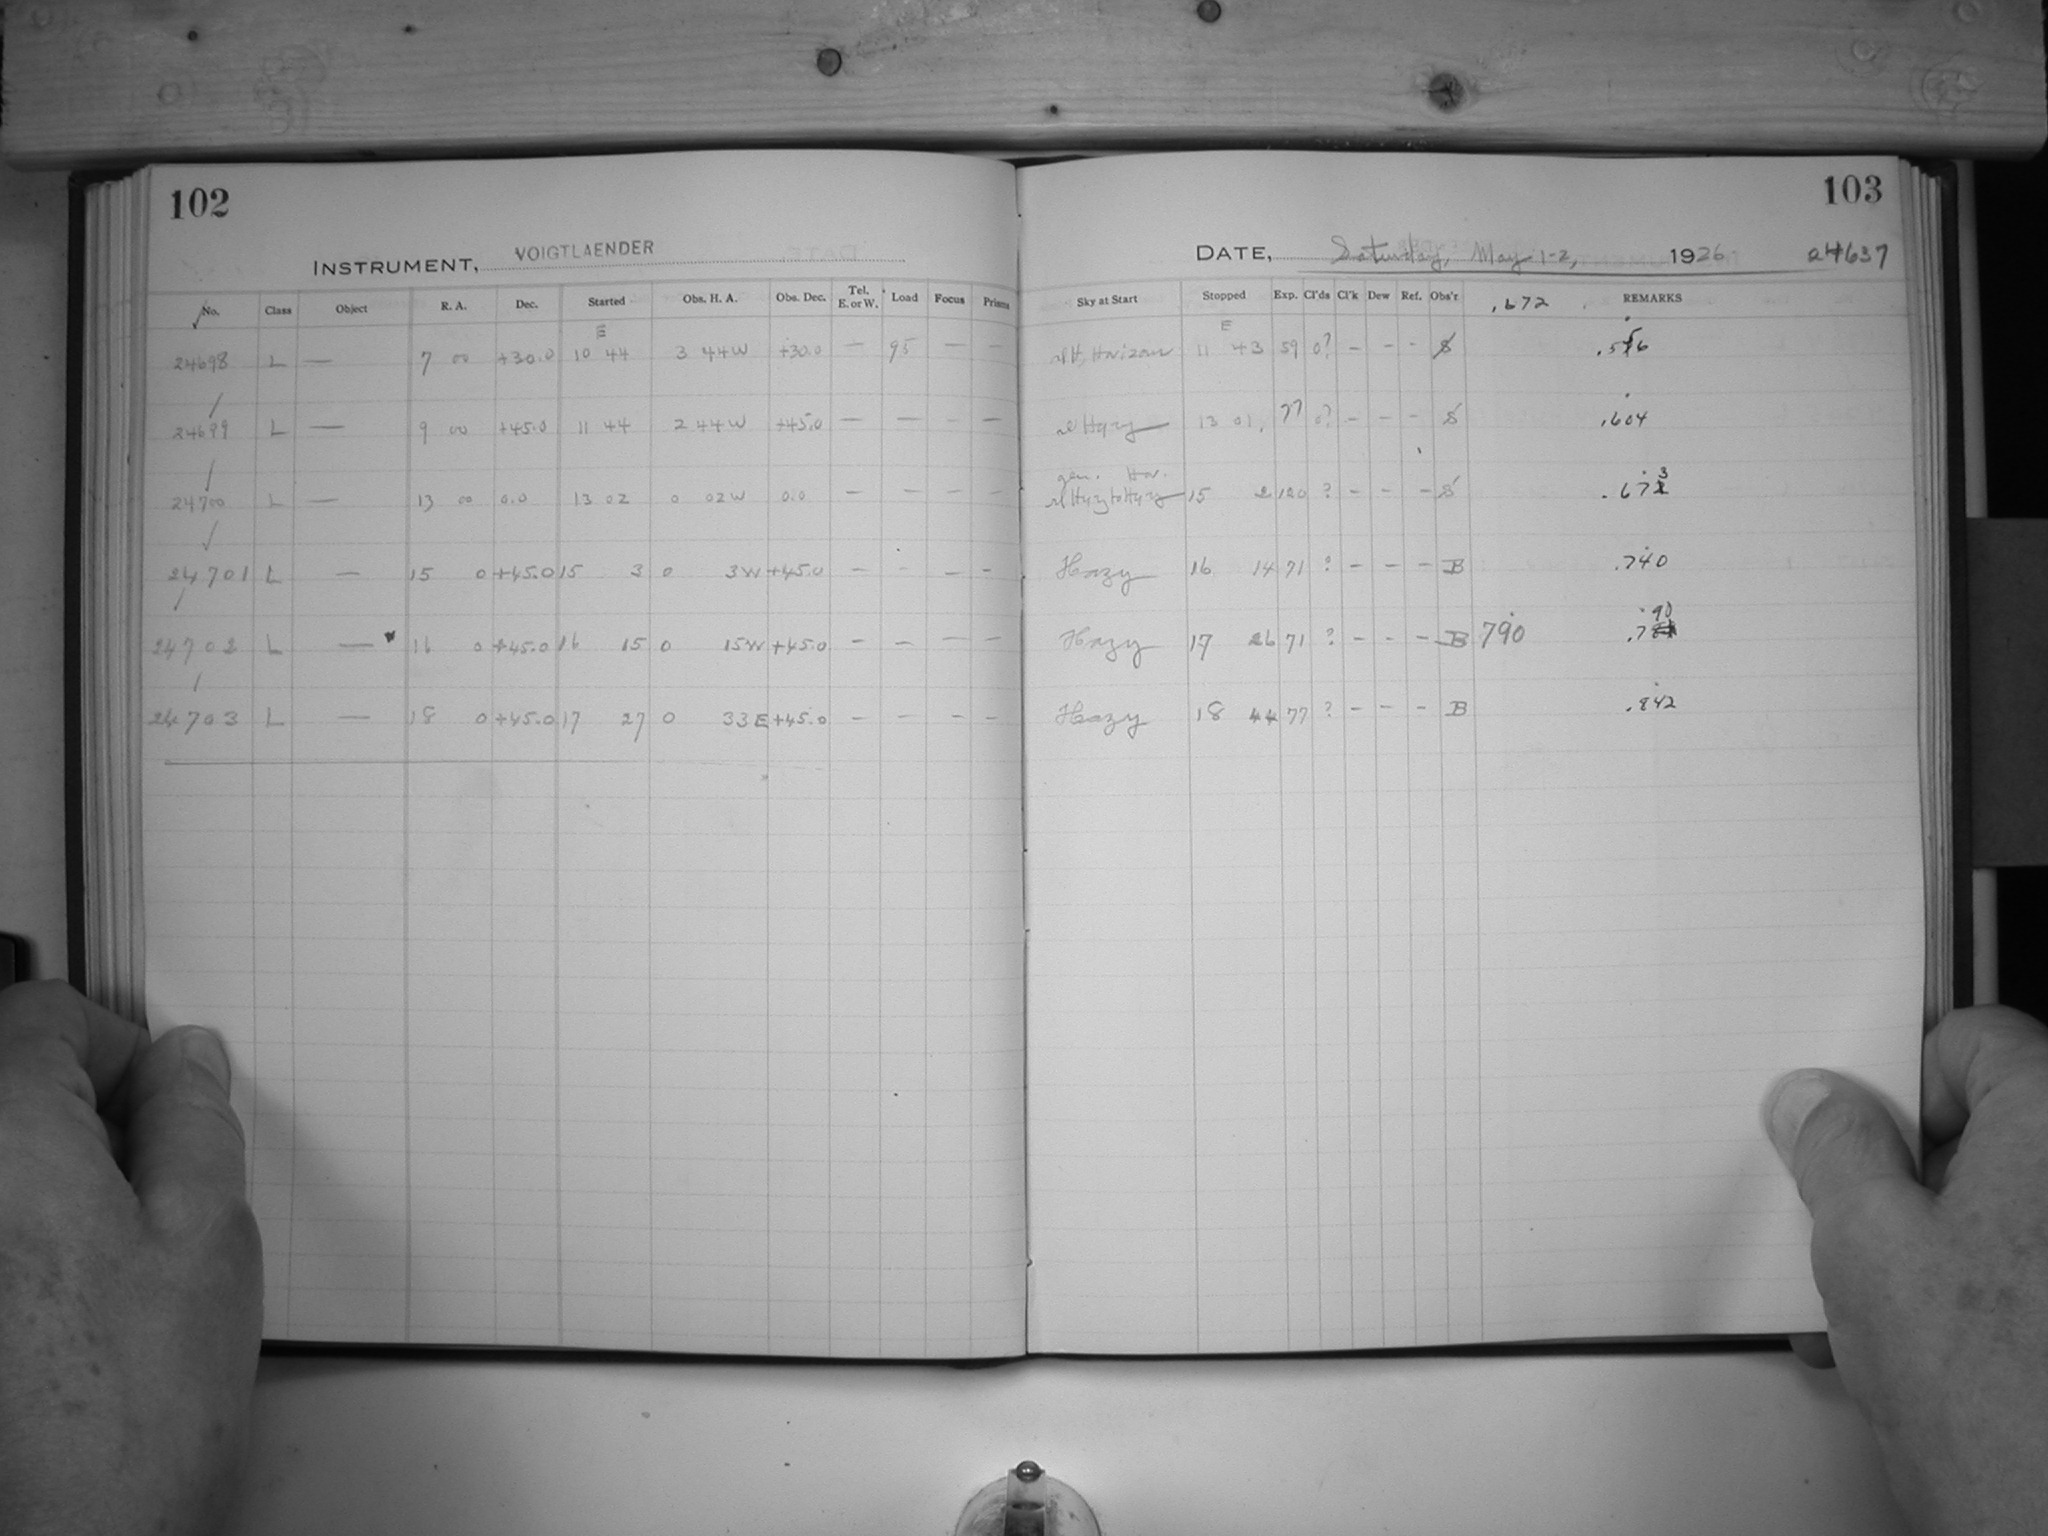 102
INSTRUMENT, VOIGTLAENDER
No. Class Object R. A. Dec. Started Obs. H. A. Obs. Dec. Tel. E. or W. Load Focus Prisms
E
24698 L — 7 00 +30.0 10 44 3 44W +30.0 — 95 — —
24699 L — 9 00 +45.0 11 44 2 44W +45.0 — — — —
24700 L — 13 00 0.0 13 02 0 02W 0.0 — — — —
24701 L — 15 0 +45.0 15 3 0 3W +45.0 — - — —
24702 L — 16 0 +45.0 16 15 0 15W +45.0 — — — —
24703 L — 18 0 +45.0 17 27 0 33E +45.0 — - — —
103
DATE, Saturday, May 1-2, 1926 24637
Sky at Start Stopped Exp. Cl'ds Cl'k Dew Ref. Obs'r .672 REMARKS
E
Horizon 11 43 59 0? - - - S
Hazy 13 01, 77 0? - - - S .604
gen. Hor.
15 2 120 ? - - - S .673
Hazy 16 14 71 ? - - - B .740
Hazy 17 26 71 ? - - - B 790 90
Hazy 18 44 77 ? - - - B .842